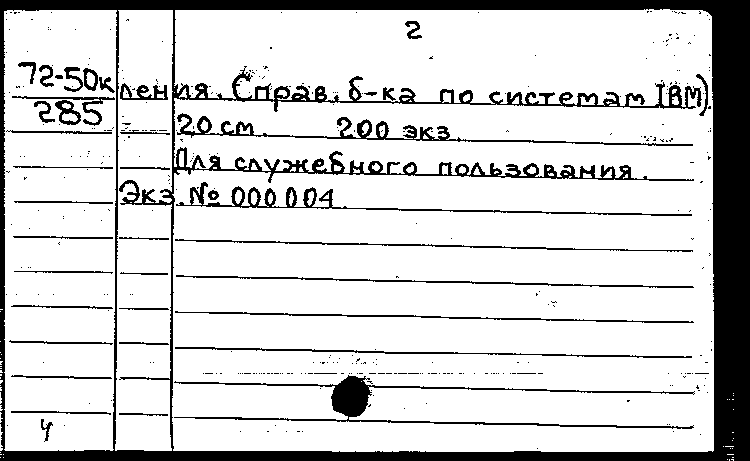 2
72-50к
285
ления. Справ. б-ка по системам IBM)
20 см. 200 экз.
Для служебного пользования.
Экз. № 000004
4